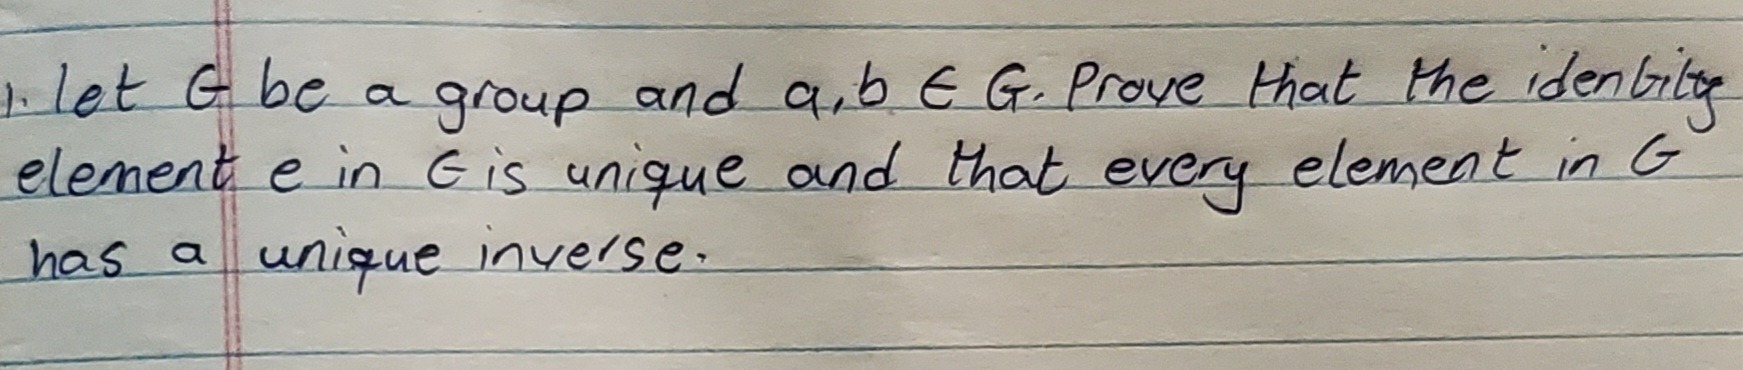 1. let G be a group and a,b ∈ G. Prove that the identity
element e in G is unique and that every element in G
has a unique inverse.